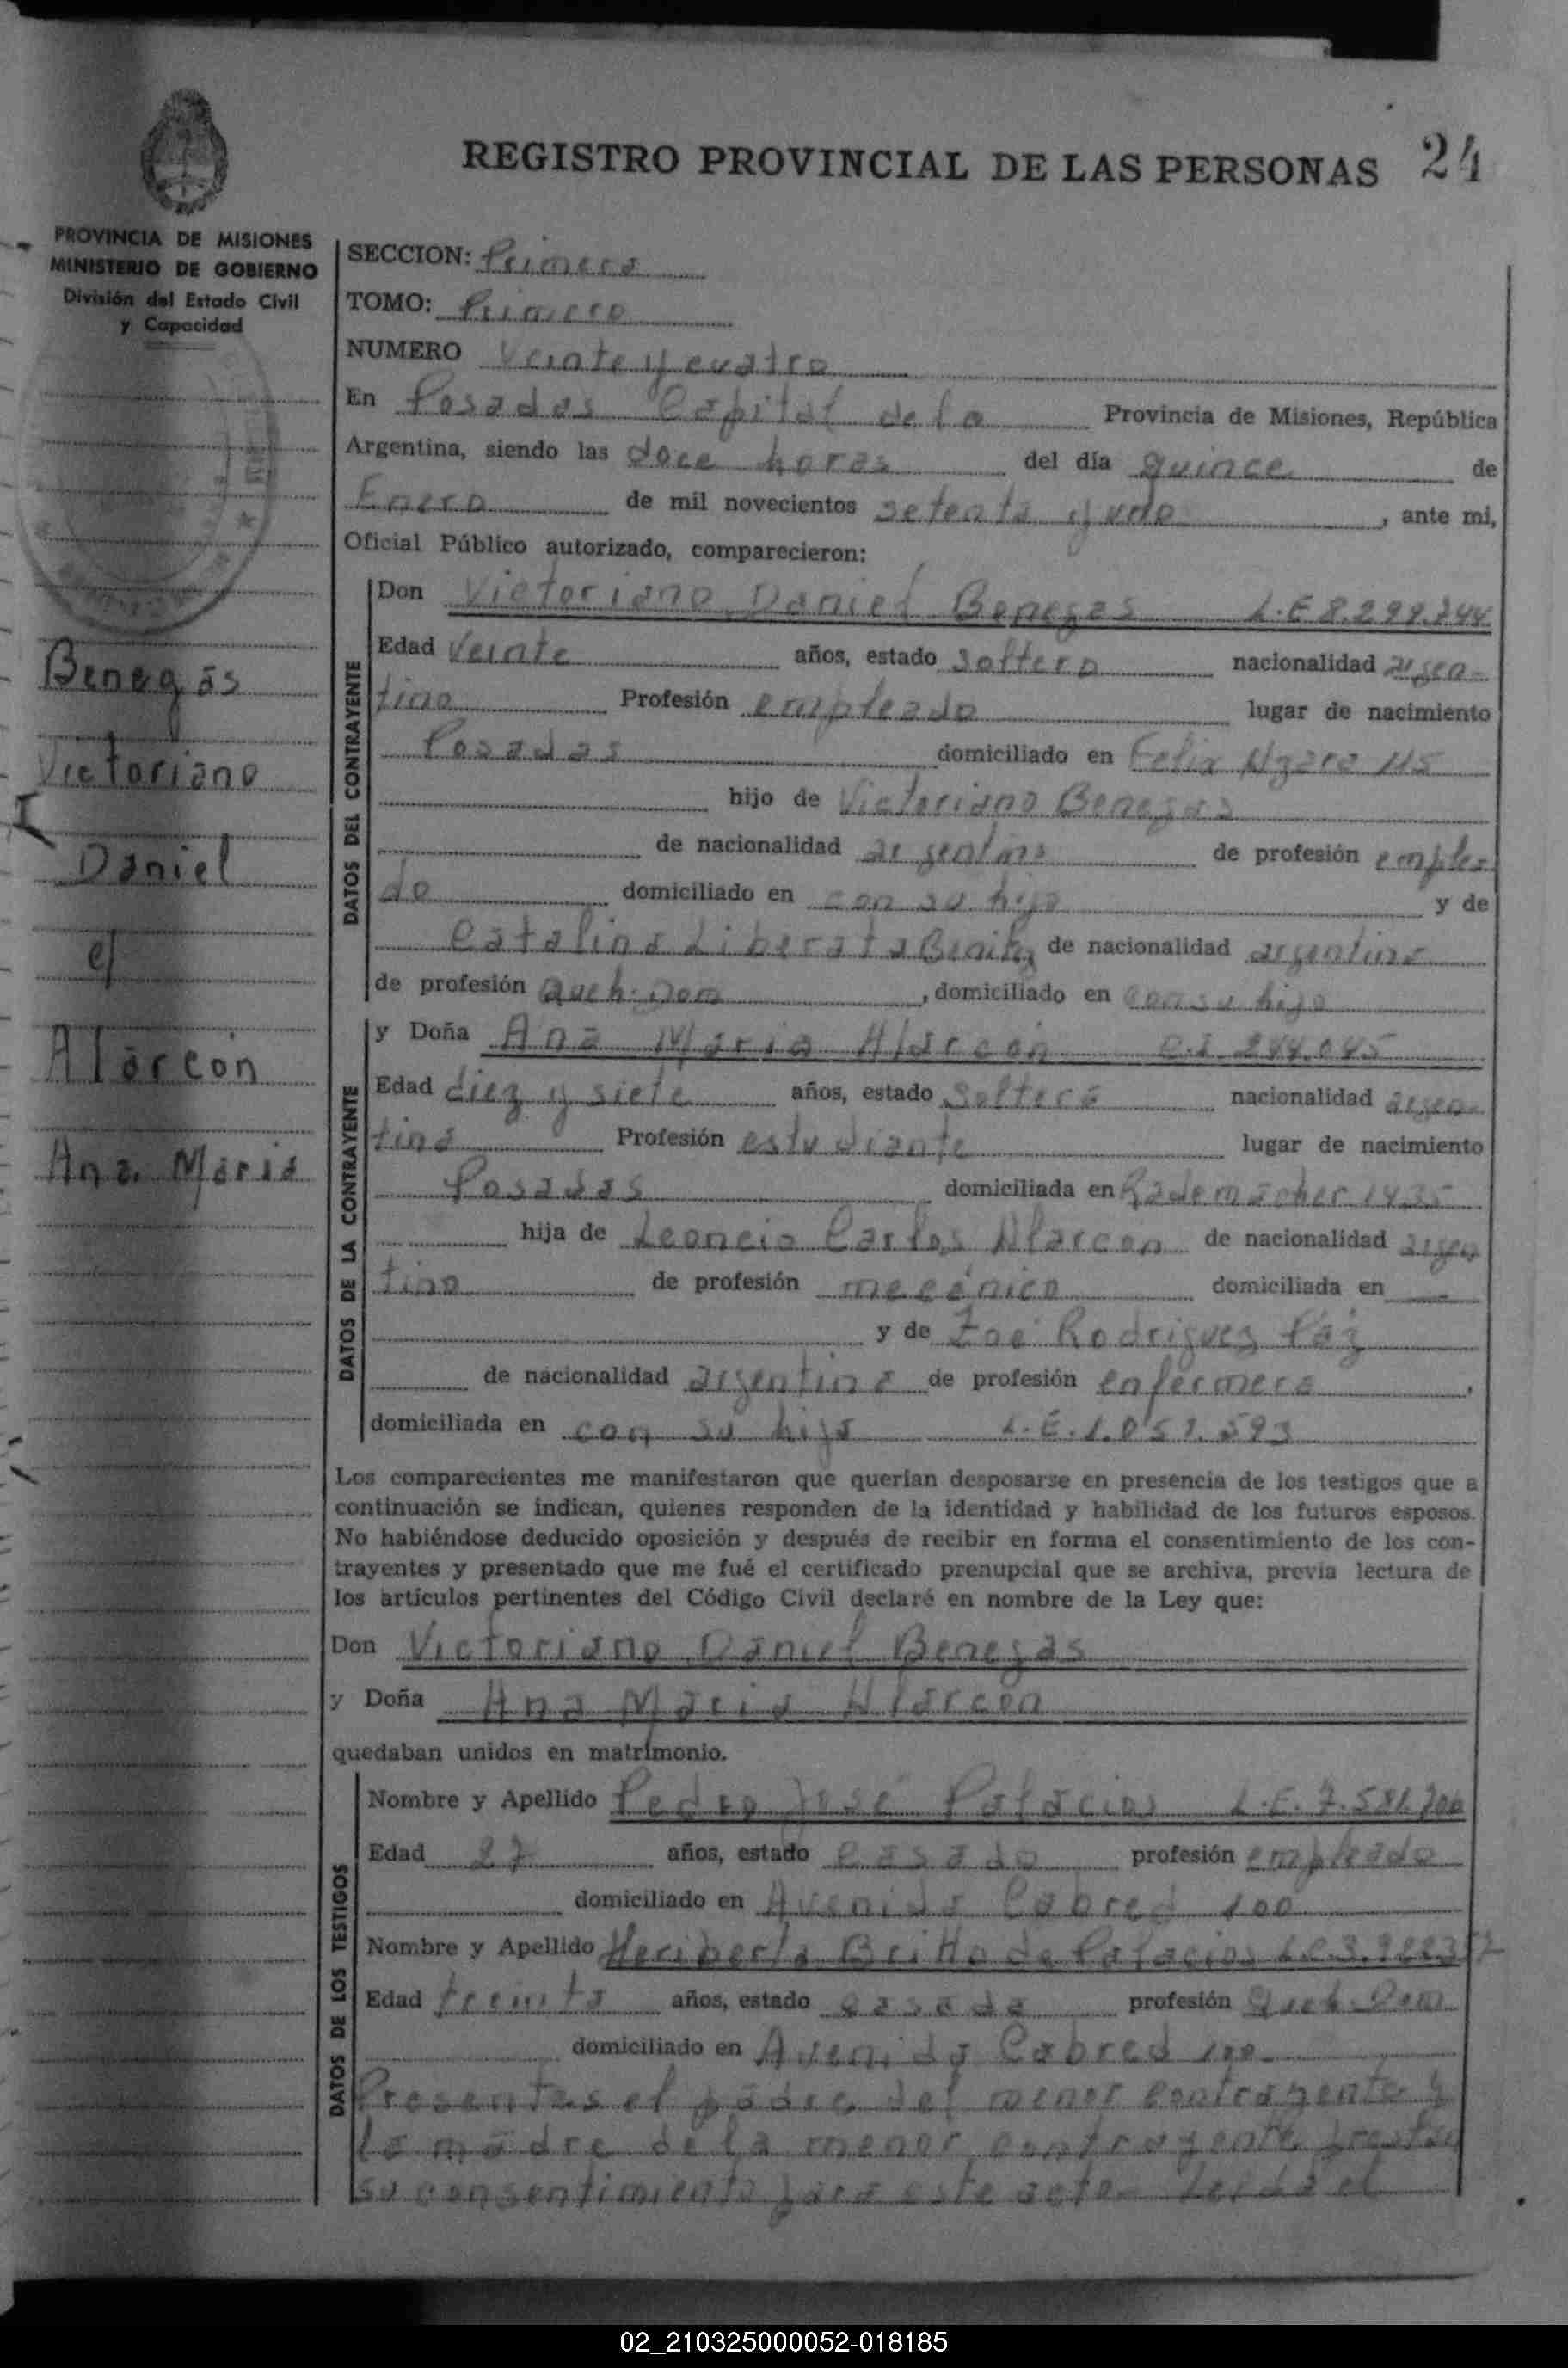 REGISTRO PROVINCIAL DE LAS PERSONAS 24
PROVINCIA DE MISIONES
MINISTERIO DE GOBIERNO
División del Estado Civil
y Capacidad
Benegas
Victoriano
Daniel
y
Alarcón
Ana Maria
SECCION: Primera
TOMO: Primero
NUMERO Veinte y cuatro
En Posadas Capital de la Provincia de Misiones, República
Argentina, siendo las doce horas del día quince de
Enero de mil novecientos setenta y uno, ante mi,
Oficial Público autorizado, comparecieron:
DATOS DEL CONTRAYENTE
Don Victoriano Daniel Benegas L.E 8.299.244
Edad Veinte años, estado soltero nacionalidad argen-
tino Profesión empleado lugar de nacimiento
Posadas domiciliado en Felix Azara 115
hijo de Victoriano Benegas
de nacionalidad argentino de profesión emplea
do domiciliado en con su hijo y de
Catalina Liberata Benitez de nacionalidad argentina
de profesión Queh. Dom, domiciliado en con su hijo
DATOS DE LA CONTRAYENTE
y Doña Ana Maria Alarcón C.I. 244.045
Edad diez y siete años, estado soltera nacionalidad argen-
tina Profesión estudiante lugar de nacimiento
Posadas domiciliada en Rademacher 1435
hija de Leoncio Carlos Alarcon de nacionalidad argen
tino de profesión mecánico domiciliada en —
y de Zoé Rodriguez Paz
de nacionalidad argentina de profesión enfermera,
domiciliada en con su hija L.E.1.051.593
Los comparecientes me manifestaron que querían desposarse en presencia de los testigos que a
continuación se indican, quienes responden de la identidad y habilidad de los futuros esposos.
No habiéndose deducido oposición y después de recibir en forma el consentimiento de los con-
trayentes y presentado que me fué el certificado prenupcial que se archiva, previa lectura de
los artículos pertinentes del Código Civil declaré en nombre de la Ley que:
Don Victoriano Daniel Benegas
y Doña Ana Maria Alarcon
quedaban unidos en matrimonio.
DATOS DE LOS TESTIGOS
Nombre y Apellido Pedro José Palacios L.E. 7.581.700
Edad 27 años, estado casado profesión empleado
domiciliado en Avenida Cabred 100
Nombre y Apellido Heriberta Britto de Palacios
Edad treinta años, estado casada profesión Queh. Dom
domiciliado en Avenida Cabred 100
Presentes el padre del menor contrayente y
la madre de la menor contrayente prestan
su consentimiento para este acto. Leida el
02_210325000052-018185